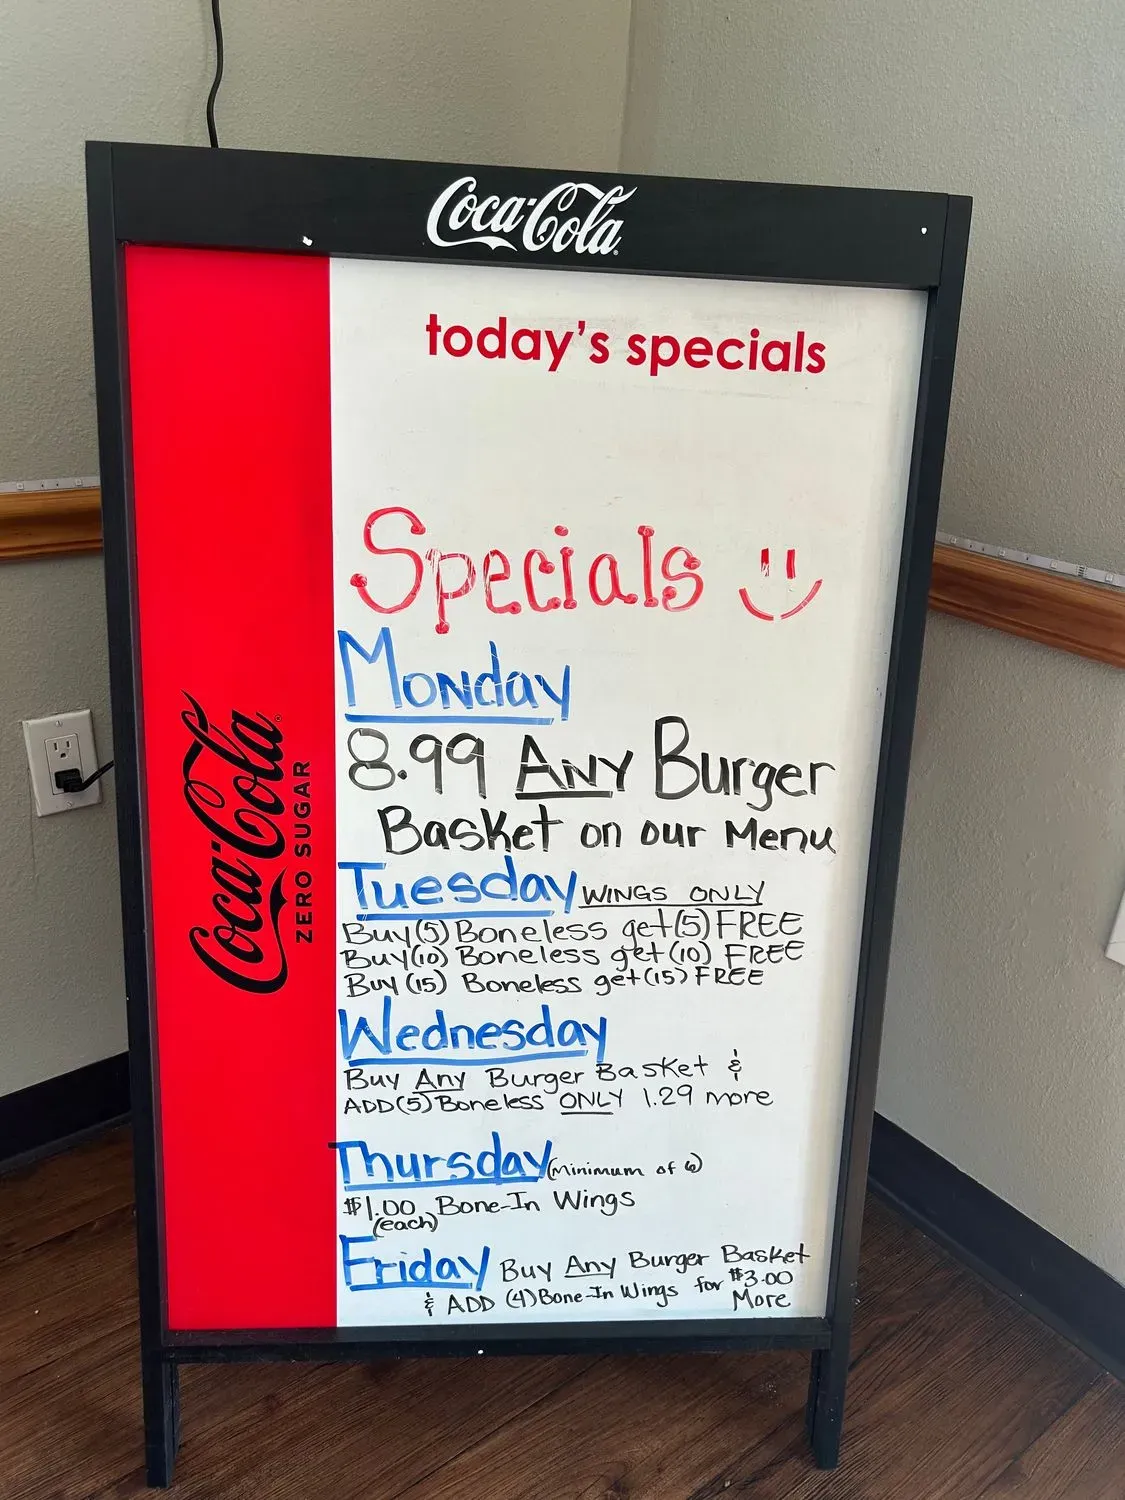 Coca-Cola
today's specials
Specials
Monday
8.99 Any Burger
Basket on our Menu
Tuesday WINGS ONLY
Buy (5) Boneless get (5) FREE
Buy (10) Boneless get (10) FREE
Buy (15) Boneless get (15) FREE
Wednesday
Buy Any Burger Basket &
ADD (5) Boneless ONLY 1.29 more
Thursday (minimum of 6)
$1.00 Bone-In Wings
(each)
Friday Buy Any Burger Basket
& ADD (4) Bone-In Wings for $3.00
More
Coca-Cola
ZERO SUGAR